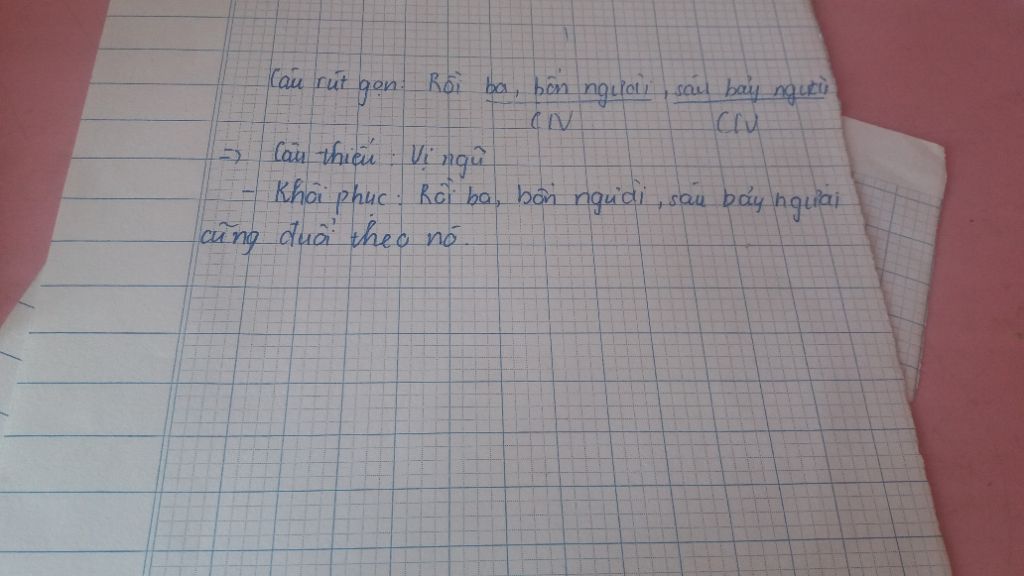 Câu rút gọn: Rồi ba, bốn người, sáu bảy người
CN CN
=> Câu thiếu: Vị ngữ
- Khôi phục: Rồi ba, bốn người, sáu bảy người
cũng đuổi theo nó.